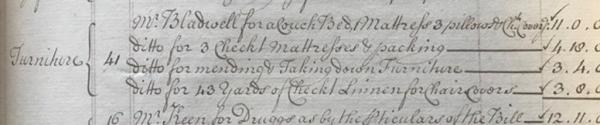 Mr. Bladwell for a Couch Bed, 1 Mattress 3 pillows & Chk. Covers 11.0.0
ditto for 3 Checkt Mattresses & packing 4.10.0
Furniture 41 ditto for mending & Taking down Furniture 3.4.0
ditto for 43 Yards of Checkt Linnen for Chair Covers 3.8.0
16 Mr. Keen for Druggs as by the pticulars of the Bill 12.11.0